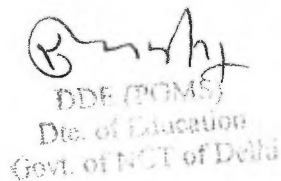 DDE (PGMS)
Dte. of Education
Govt. of NCT of Delhi